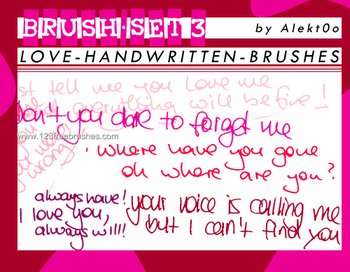 BRUSH·SET 3
by Alekt0o
LOVE-HANDWRITTEN-BRUSHES
st tell me you love me
everything will be fine!
Don't you dare to forget me
www.123freebrushes.com
wrong
where have you gone
oh where are you?
always have!
I love you,
always will!!!
your voice is calling me
but I can't find you